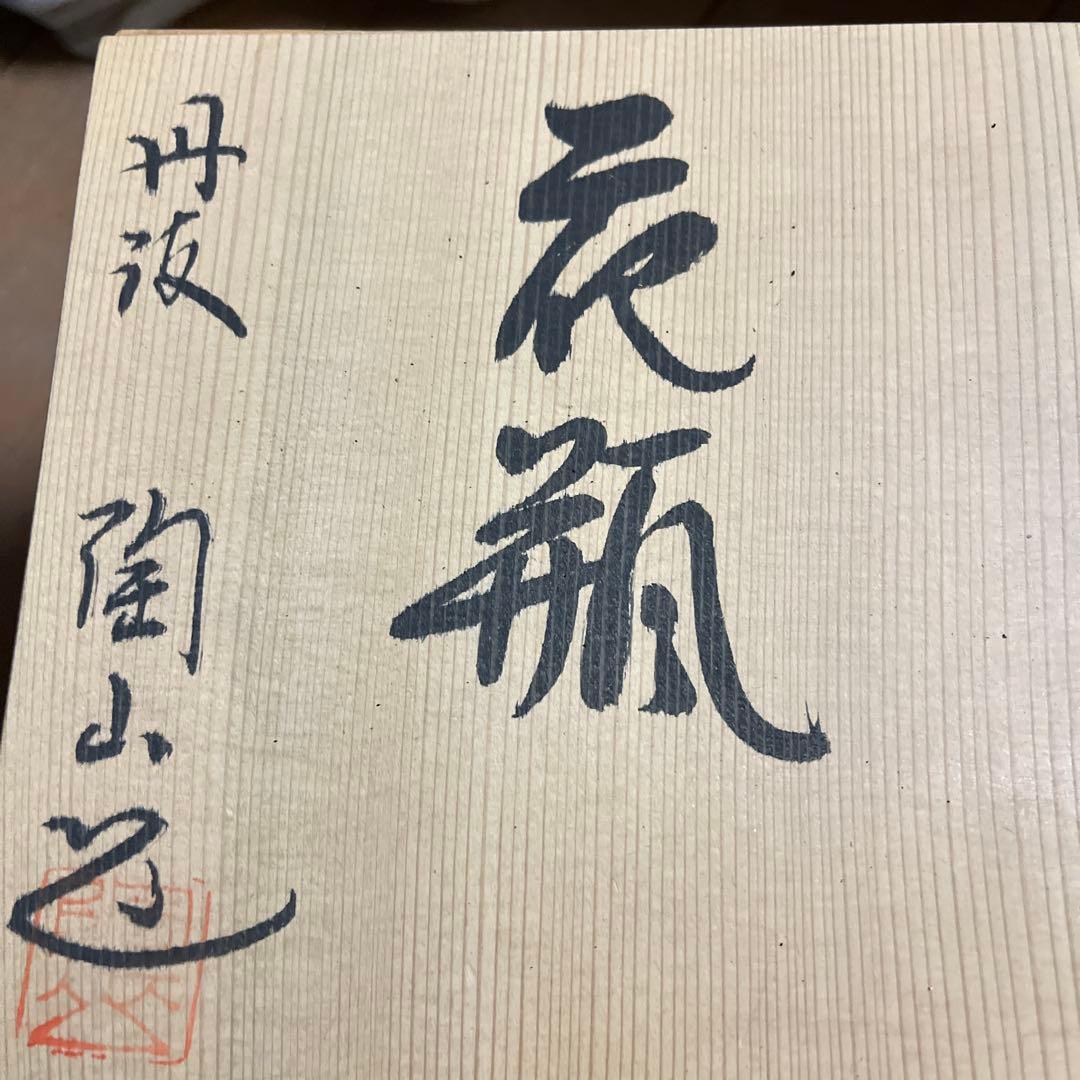 花瓶
丹波 陶山造